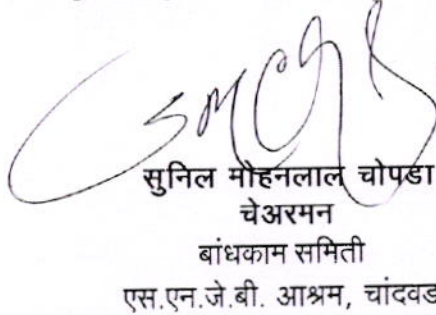 सुनिल मोहनलाल चोपडा
चेअरमन
बांधकाम समिती
एस.एन.जे.बी. आश्रम, चांदवड